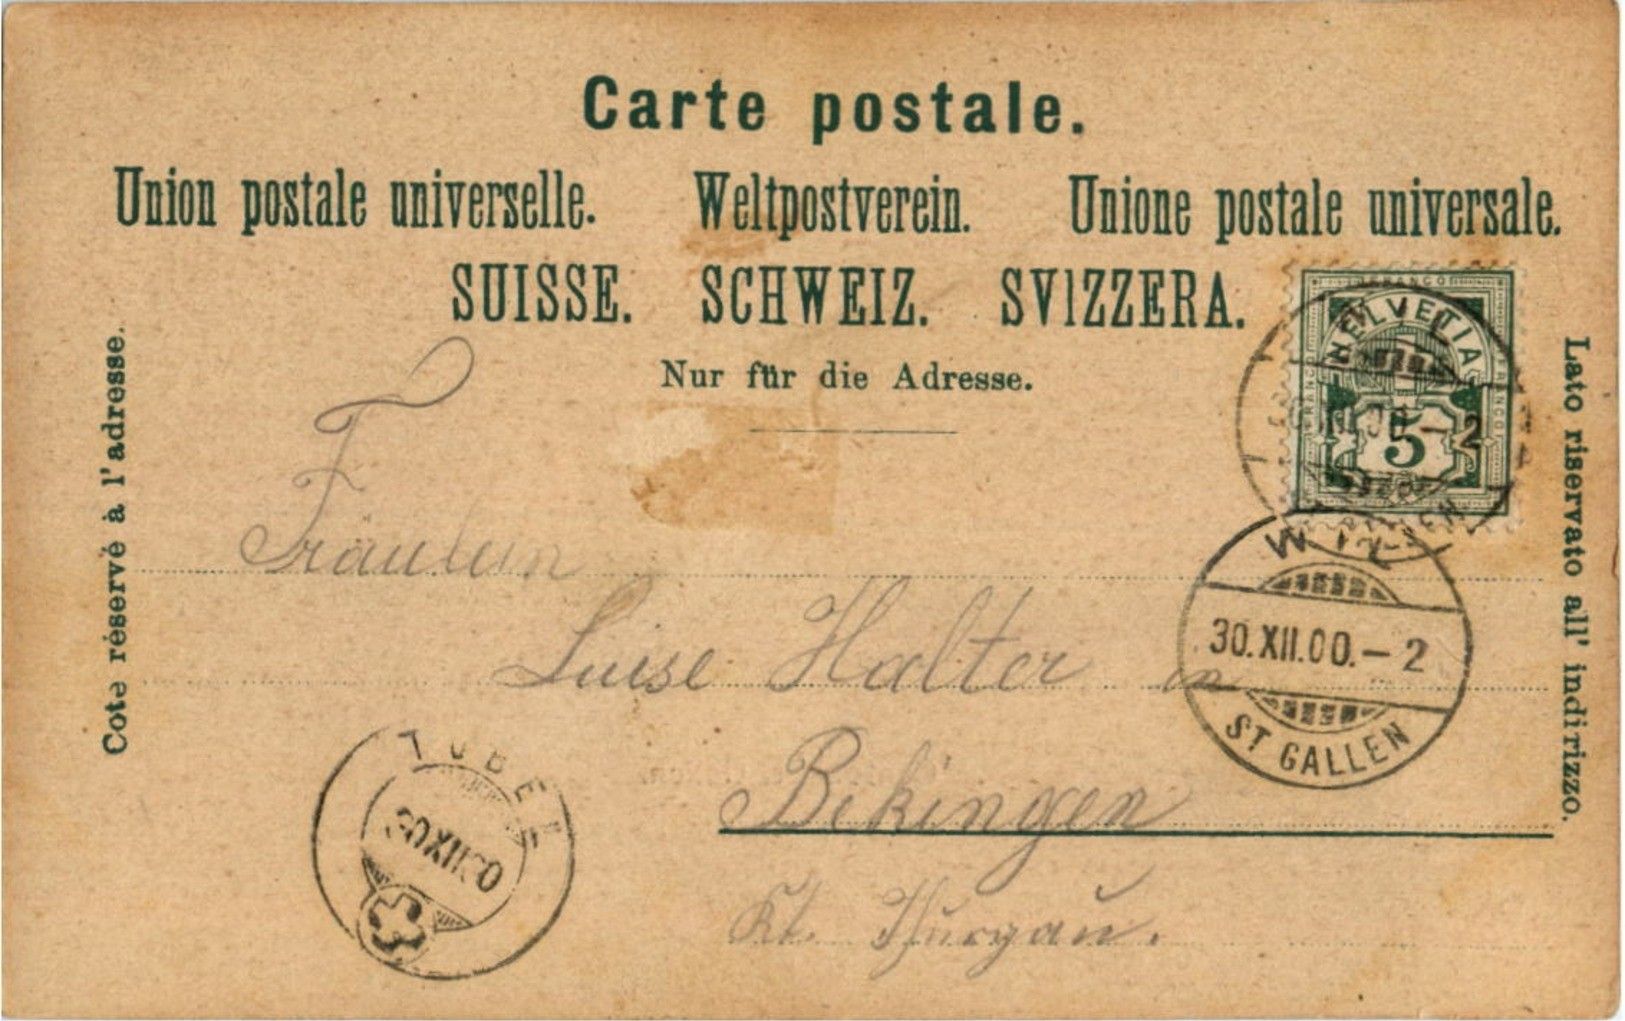 Carte postale.
Union postale universelle. Weltpostverein. Unione postale universale.
SUISSE. SCHWEIZ. SVIZZERA.
Nur für die Adresse.
Côté réservé à l'adresse.
Lato riservato all' indirizzo.
FRANCO
HELVETIA
FRANCO
FRANCO
5
WIL
30.XII.00.–2
ST GALLEN
Fräulein
Luise Halter
Bekingen
Kt. Thurgau.
TOBEL
30XII00